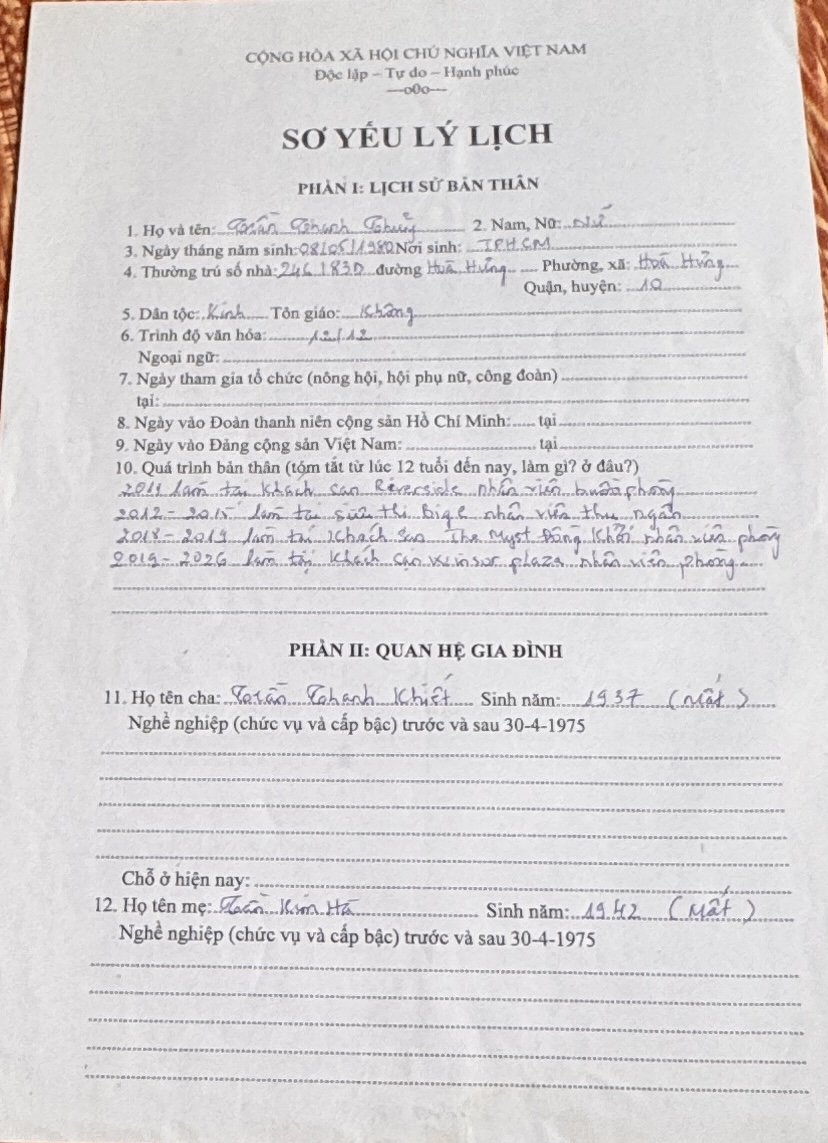 CỘNG HÒA XÃ HỘI CHỦ NGHĨA VIỆT NAM
Độc lập – Tự do – Hạnh phúc
---o0o---
SƠ YẾU LÝ LỊCH
PHẦN I: LỊCH SỬ BẢN THÂN
1. Họ và tên: Trần Thanh Thủy 2. Nam, Nữ: Nữ
3. Ngày tháng năm sinh: 08/05/1980 Nơi sinh: TPHCM
4. Thường trú số nhà: 246/83D đường Hoà Hưng Phường, xã: Hoà Hưng
Quận, huyện: 10
5. Dân tộc: Kinh Tôn giáo: Không
6. Trình độ văn hóa: 12/12
Ngoại ngữ:
7. Ngày tham gia tổ chức (nông hội, hội phụ nữ, công đoàn)
tại:
8. Ngày vào Đoàn thanh niên cộng sản Hồ Chí Minh: tại
9. Ngày vào Đảng cộng sản Việt Nam: tại
10. Quá trình bản thân (tóm tắt từ lúc 12 tuổi đến nay, làm gì? ở đâu?)
2011 làm tại khách sạn Riverside nhân viên buồng phòng
2012 - 2015 làm tại siêu thị bigc nhân viên thu ngân
2018 - 2019 làm tại khách sạn The Myst Đồng Khởi nhân viên phòng
2019 - 2026 làm tại khách sạn winsor plaza nhân viên phòng
PHẦN II: QUAN HỆ GIA ĐÌNH
11. Họ tên cha: Trần Thanh Khiết Sinh năm: 1937 (Mất)
Nghề nghiệp (chức vụ và cấp bậc) trước và sau 30-4-1975
Chỗ ở hiện nay:
12. Họ tên mẹ: Trần Kim Hà Sinh năm: 1942 (Mất)
Nghề nghiệp (chức vụ và cấp bậc) trước và sau 30-4-1975